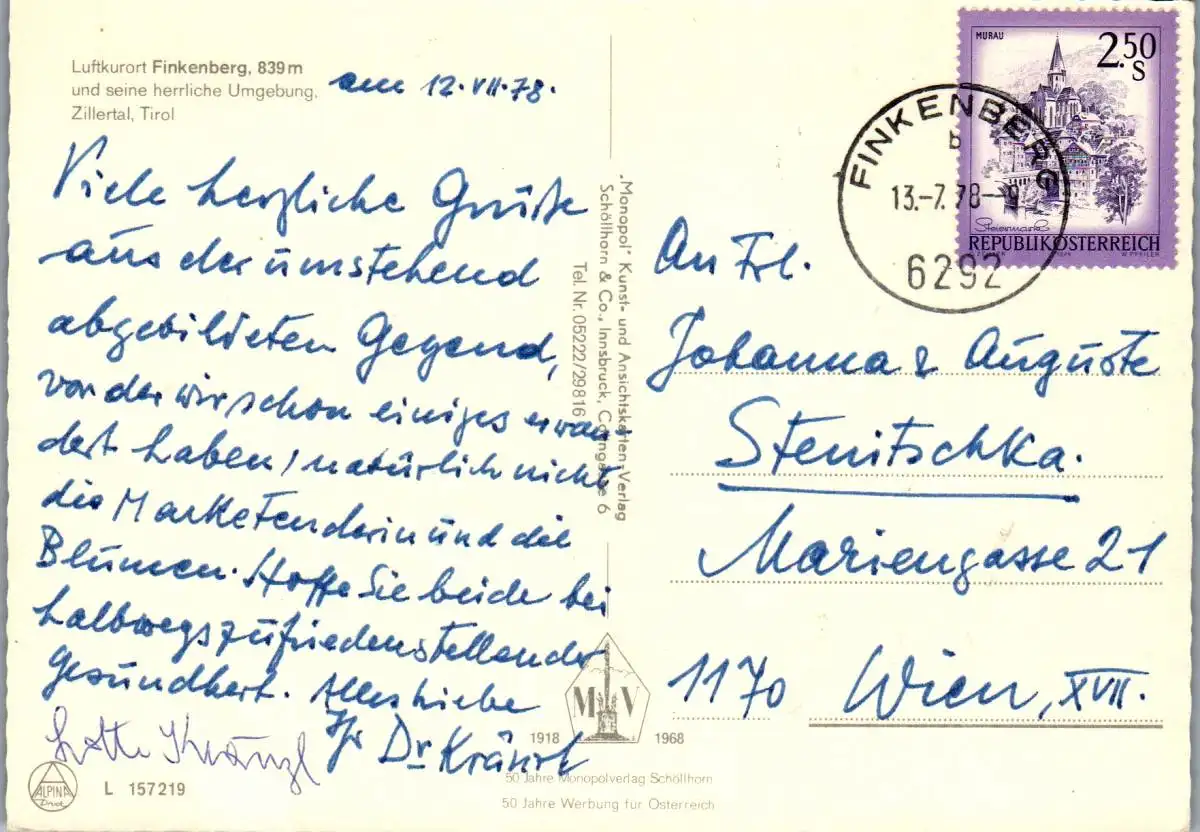 Luftkurort Finkenberg, 839 m
und seine herrliche Umgebung,
Zillertal, Tirol
am 12.VII.78.
Viele herzliche Grüße
aus der umstehend
abgebildeten Gegend,
von der wir schon einiges erwan-
dert haben, natürlich nicht
die Marketenderin und die
Blumen. Hoffe Sie beide bei
halbwegs zufriedenstellender
Gesundheit. Alles Liebe
Ihr Dr
Lotte
ALPINA
Druck
L 157219
„Monopol" Kunst- und Ansichtskarten-Verlag
Schöllhorn & Co., Innsbruck, 6
Tel. Nr. 05222/29816
M V
1918 1968
50 Jahre Monopolverlag Schöllhorn
50 Jahre Werbung für Österreich
MURAU
2.50
S
Steiermark
REPUBLIK ÖSTERREICH
W. PFEILER
FINKENBERG
b
13.-7.78--9
6292
An Frl.
Johanna & Auguste
Stenitschka.
Mariengasse 21
1170 Wien, XVII.